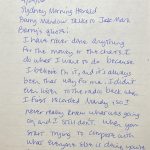 Sydney Morning Herald
Barry Meadow talks to Jack Marx
Barry's ghosts:
I have never done anything
for the money or the charts. I
do what I want to do because
I believe in it, and it's always
been that way for me. I didn't
even listen to the radio back when
I first recorded Mandy, so I
never really knew what was going
on, and I still don't. When you
start trying to compete with
what everyone else is doing you're